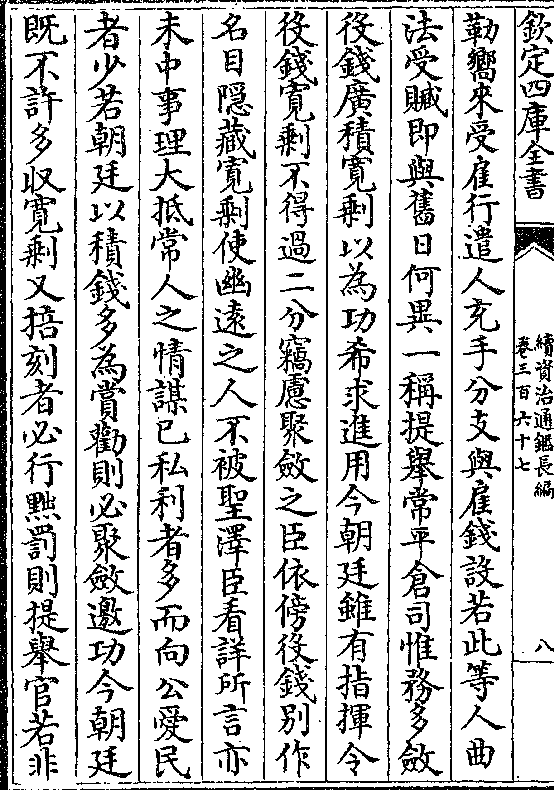 欽定四庫全書
續資治通鑑長編
卷三百六十七
八
勒嚮來受雇行遣人充手分支與雇錢設若此等人曲
法受贓即與舊日何異一稱提舉常平倉司惟務多斂
役錢廣積寛剩以為功希求進用今朝廷雖有指揮令
役錢寛剩不得過二分竊慮聚斂之臣依傍役錢別作
名目隠藏寛剩使幽遠之人不被聖澤臣看詳所言亦
未中事理大抵常人之情謀己私利者多而向公愛民
者少若朝廷以積錢多為賞勸則必聚斂邀功今朝廷
既不許多収寛剩又掊刻者必行㸃罰則提舉官若非